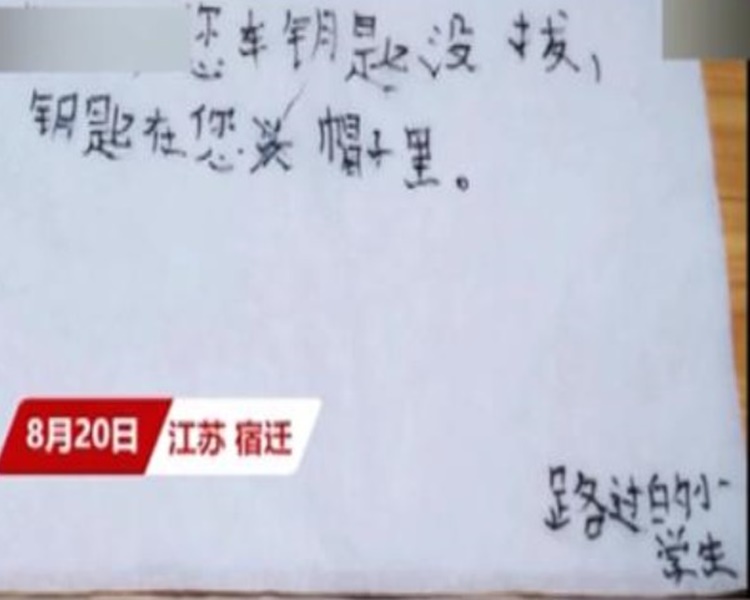 您车钥匙没拔,
钥匙在您头帽子里。
8月20日
江苏 宿迁
路过的小
学生